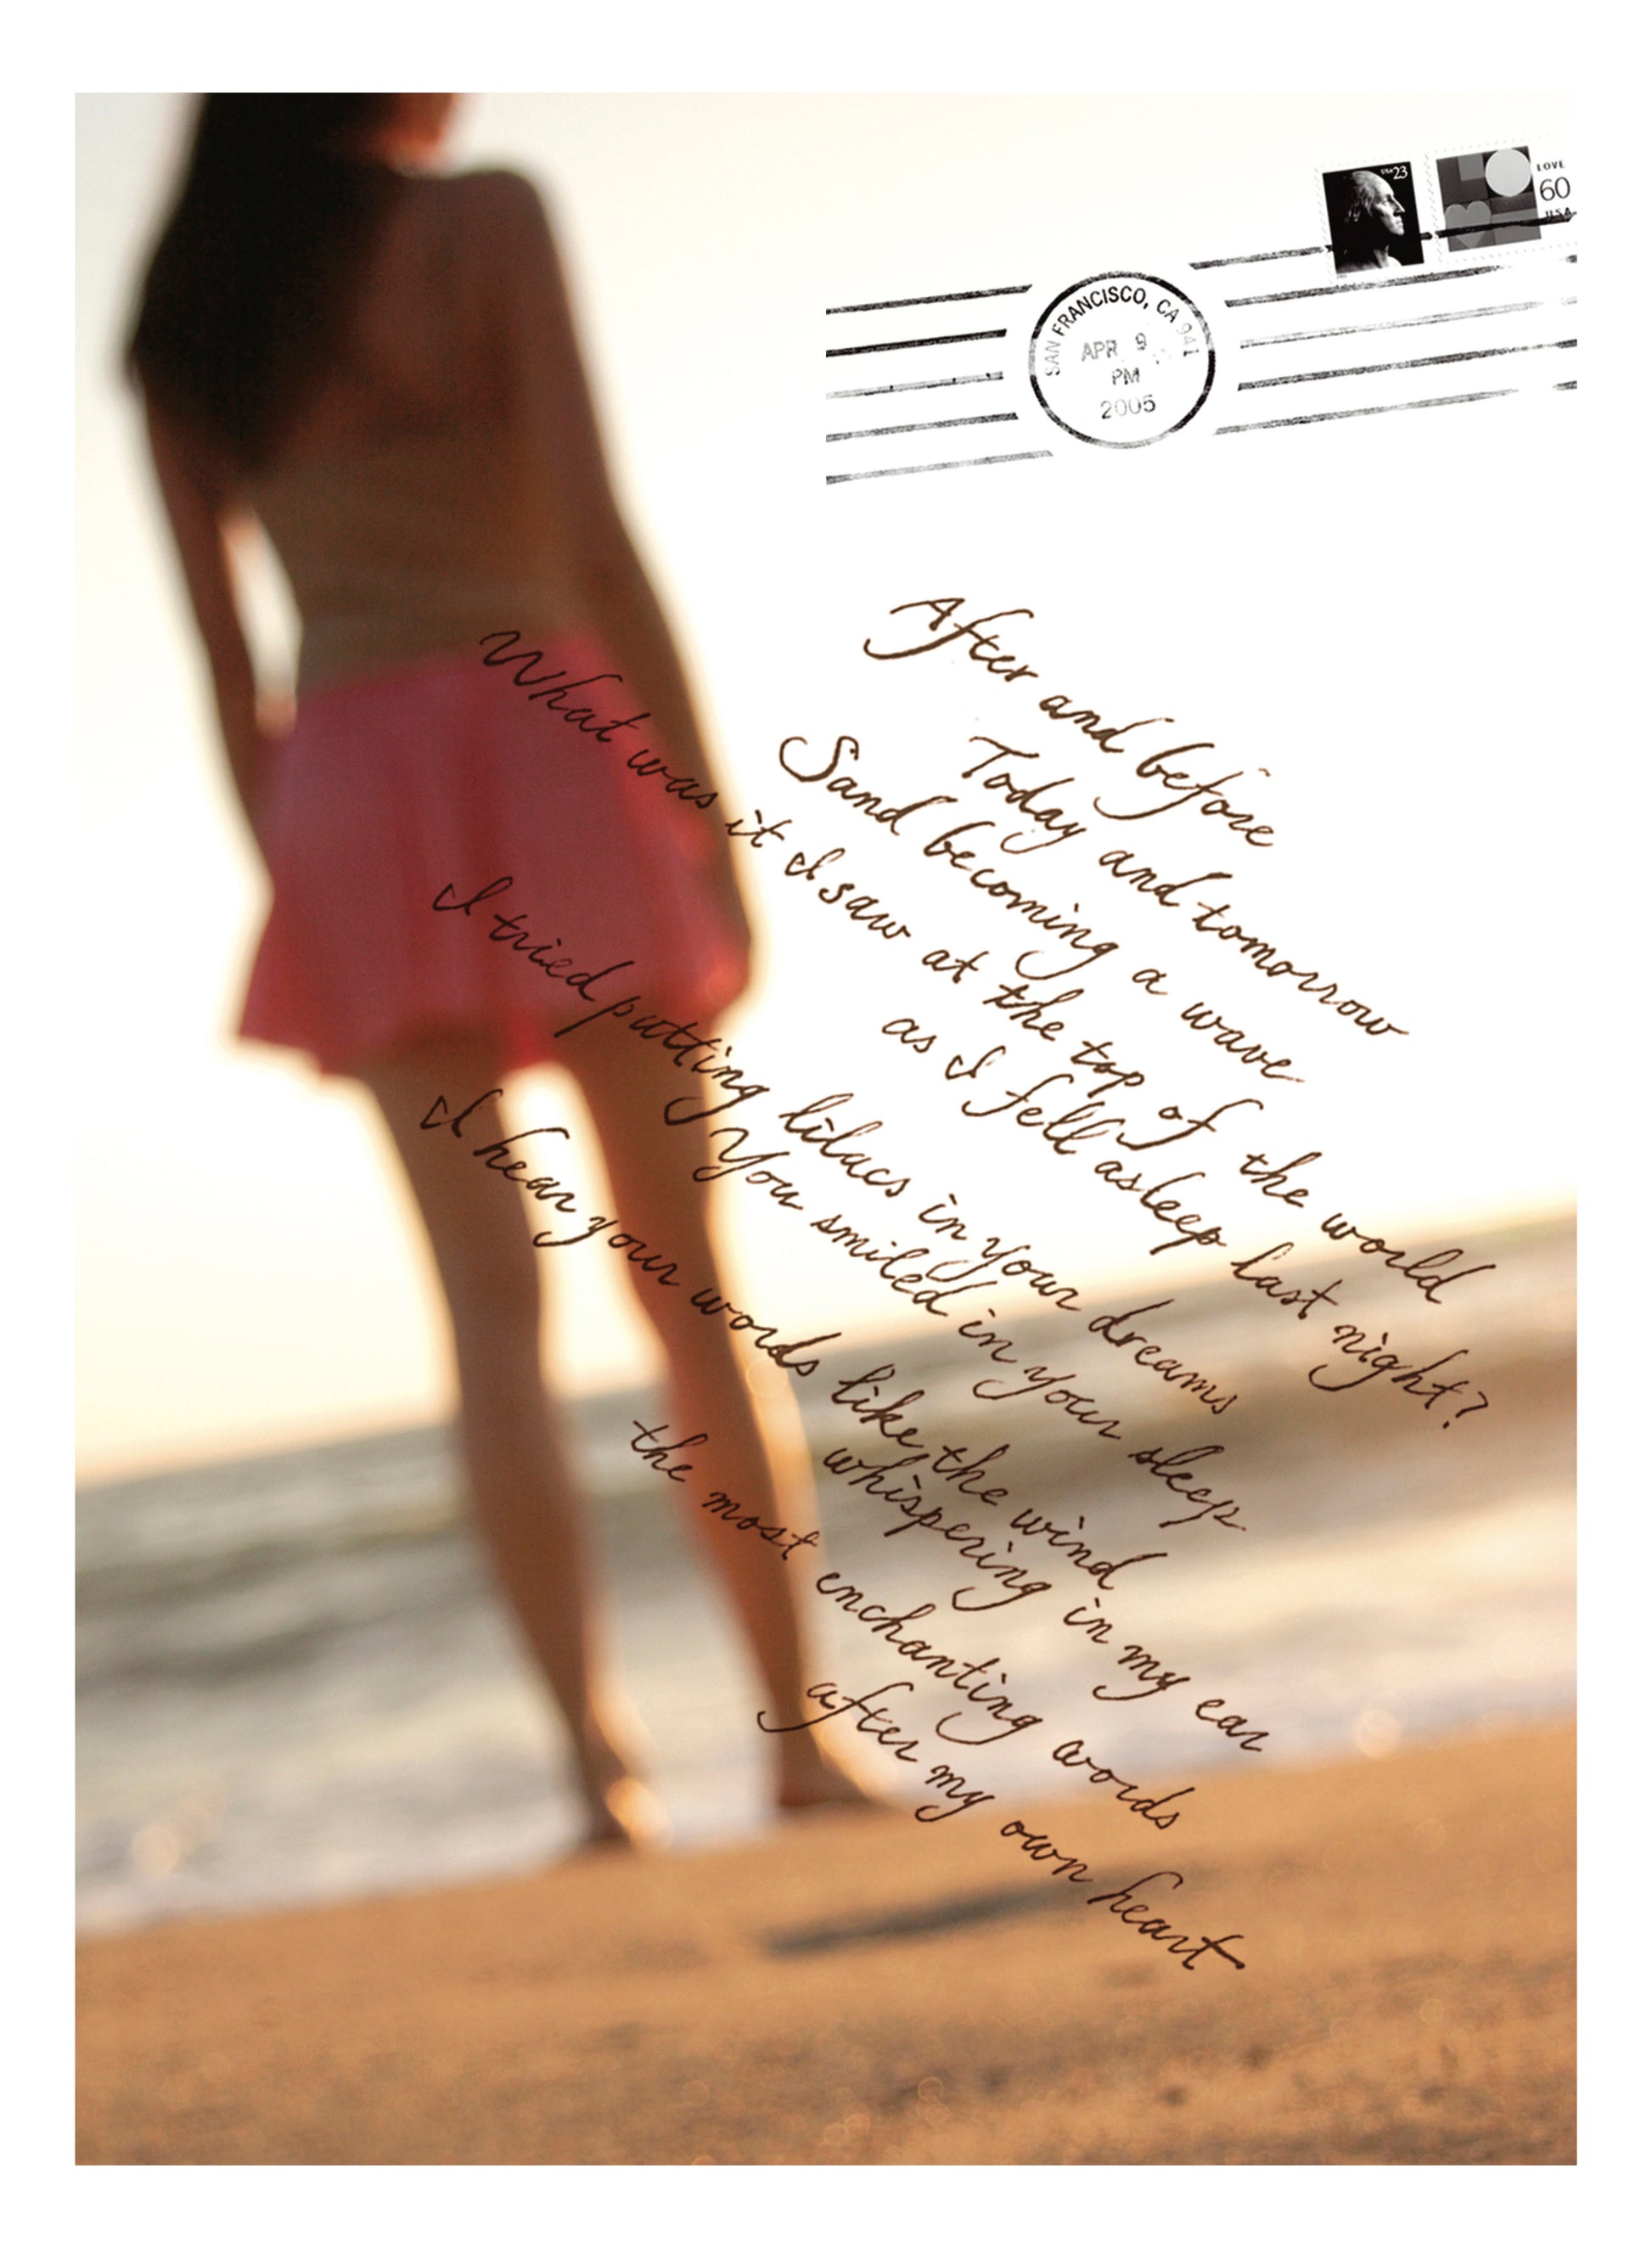 USA 23
LOVE
60
USA
SAN FRANCISCO, CA 941
APR 9
PM
2005
After and before
Today and tomorrow
Sand becoming a wave
What was it I saw at the top of the world
as I fell asleep last night?
I tried putting lilacs in your dreams
You smiled in your sleep
I hear your words like the wind
whispering in my ear
the most enchanting words
after my own heart